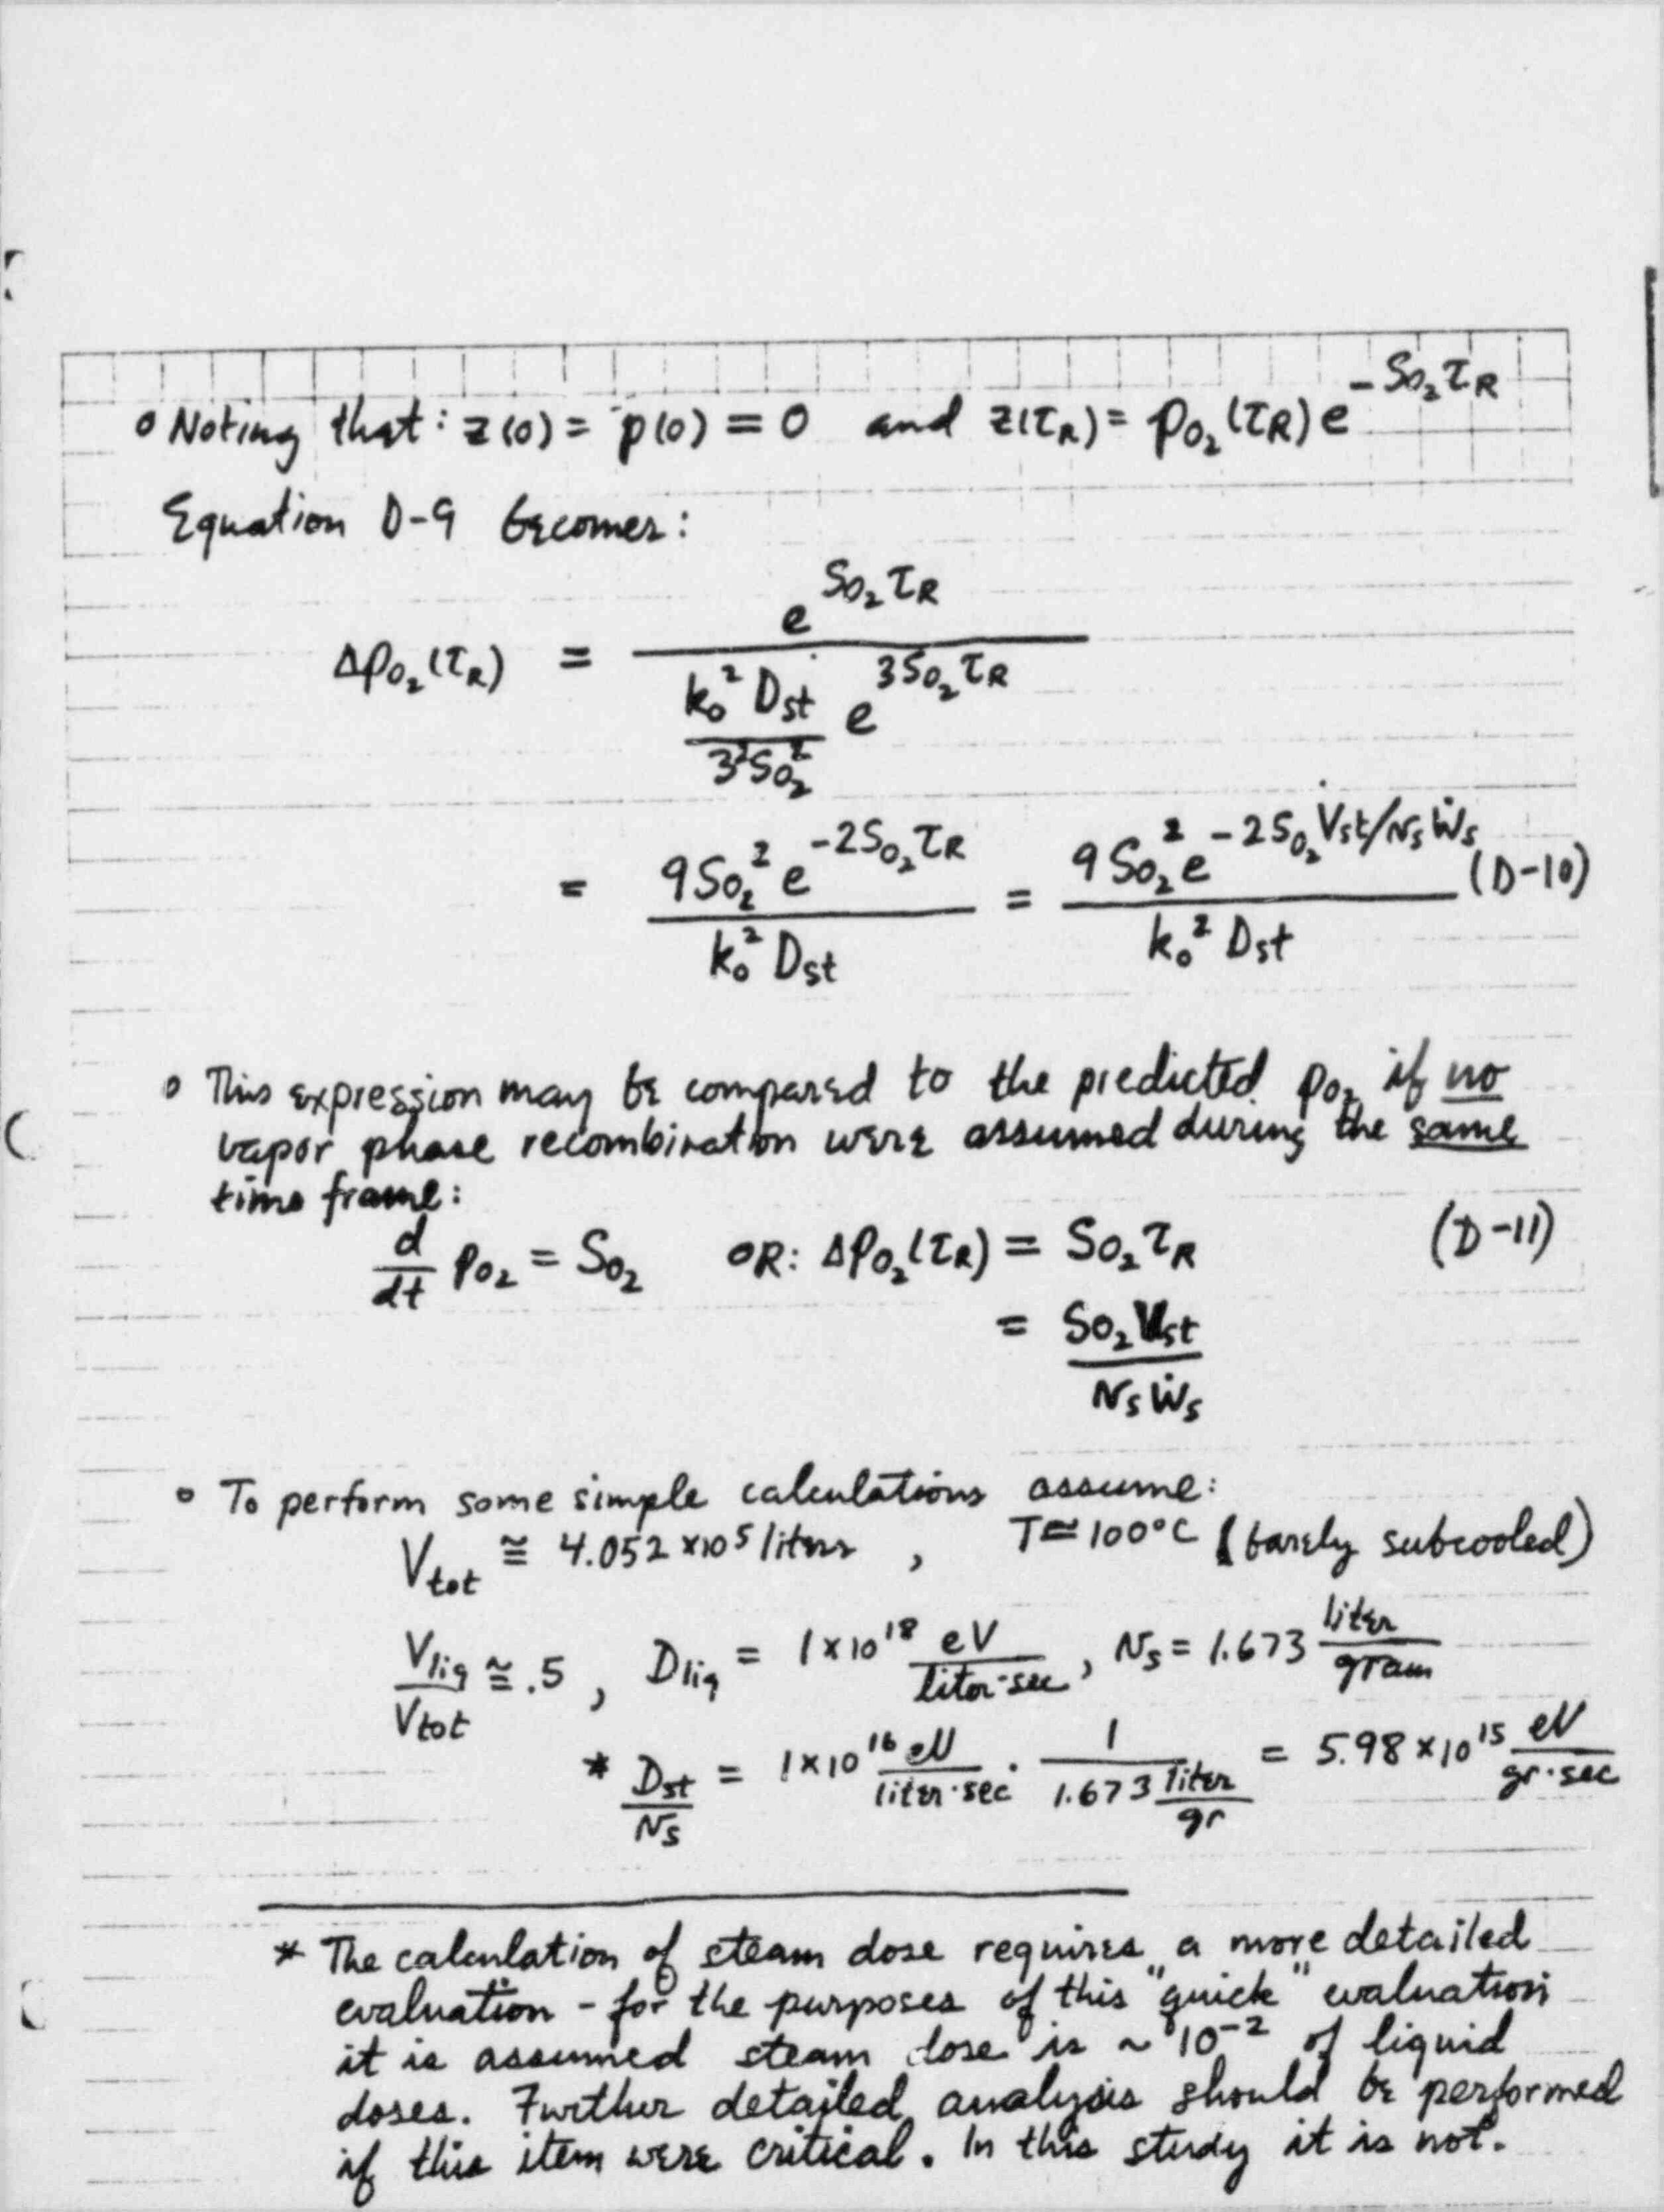 o Noting that: z(0) = p(0) = 0 and z(τR) = pO₂(τR) e^(-SO₂τR)
Equation D-9 becomes:
ΔpO₂(τR) = e^(SO₂τR) / [ (k₀² Dst / 3²SO₂²) e^(3SO₂τR) ]
= 9SO₂² e^(-2SO₂τR) / (k₀² Dst) = 9SO₂² e^(-2SO₂Vst/NsẆs) / (k₀² Dst) (D-10)
o This expression may be compared to the predicted pO₂ if no
vapor phase recombination were assumed during the same
time frame:
d/dt pO₂ = SO₂ OR: ΔpO₂(τR) = SO₂τR (D-11)
= SO₂Vst / NsẆs
o To perform some simple calculations assume:
Vtot ≅ 4.052 x10⁵ liters , T≅100°C (barely subcooled)
Vliq/Vtot ≅ .5 , Dliq = 1x10¹⁸ eV/liter·sec , Ns = 1.673 liter/gram
* Dst/Ns = 1x10¹⁶ eV/liter·sec · 1/(1.673 liter/gr) = 5.98 x10¹⁵ eV/gr·sec
* The calculation of steam dose requires a more detailed
evaluation - for the purposes of this "quick" evaluation
it is assumed steam dose is ~ 10⁻² of liquid
doses. Further detailed analysis should be performed
if this item were critical. In this study it is not.